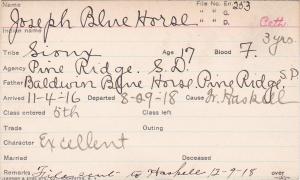 Name File No. En 203
Joseph Blue Horse " " D.
Indian name " " D. Cath
3 yrs
Tribe Sioux Age 17 Blood F.
Agency Pine Ridge, S.D.
Father Baldwin Blue Horse, Pine Ridge, S.D.
Arrived 11-4-16 Departed 8-29-18 Cause Tr. Haskell
Class entered 5th Class left
Trade Outing
Character Excellent
Married Deceased
Remarks File sent to Haskell 12-9-18 over